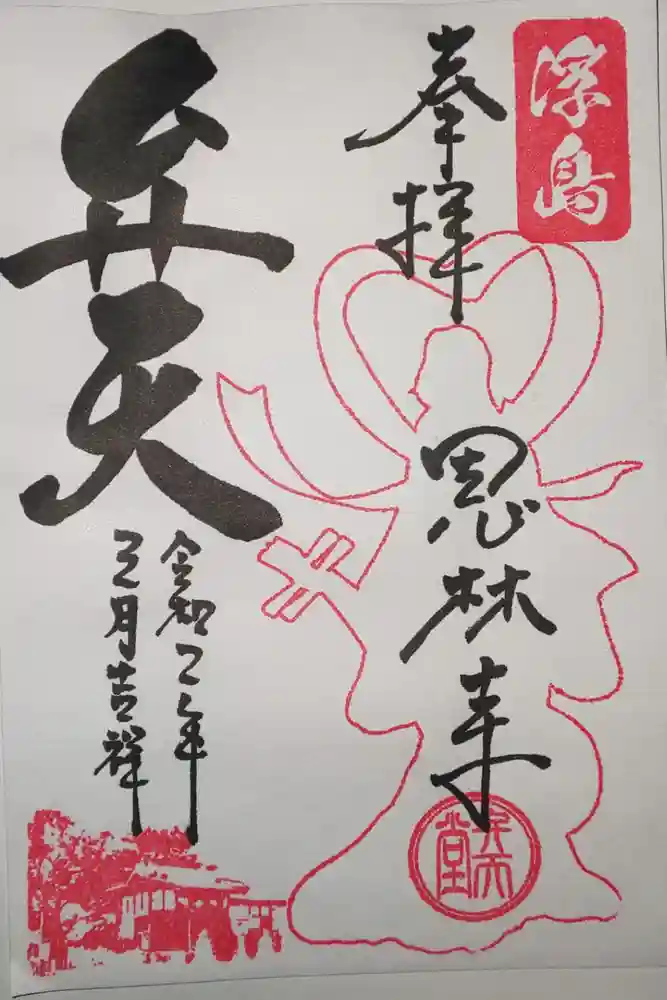 浮島
奉拝
恩林寺
弁天堂
弁天
令和二年
三月吉祥